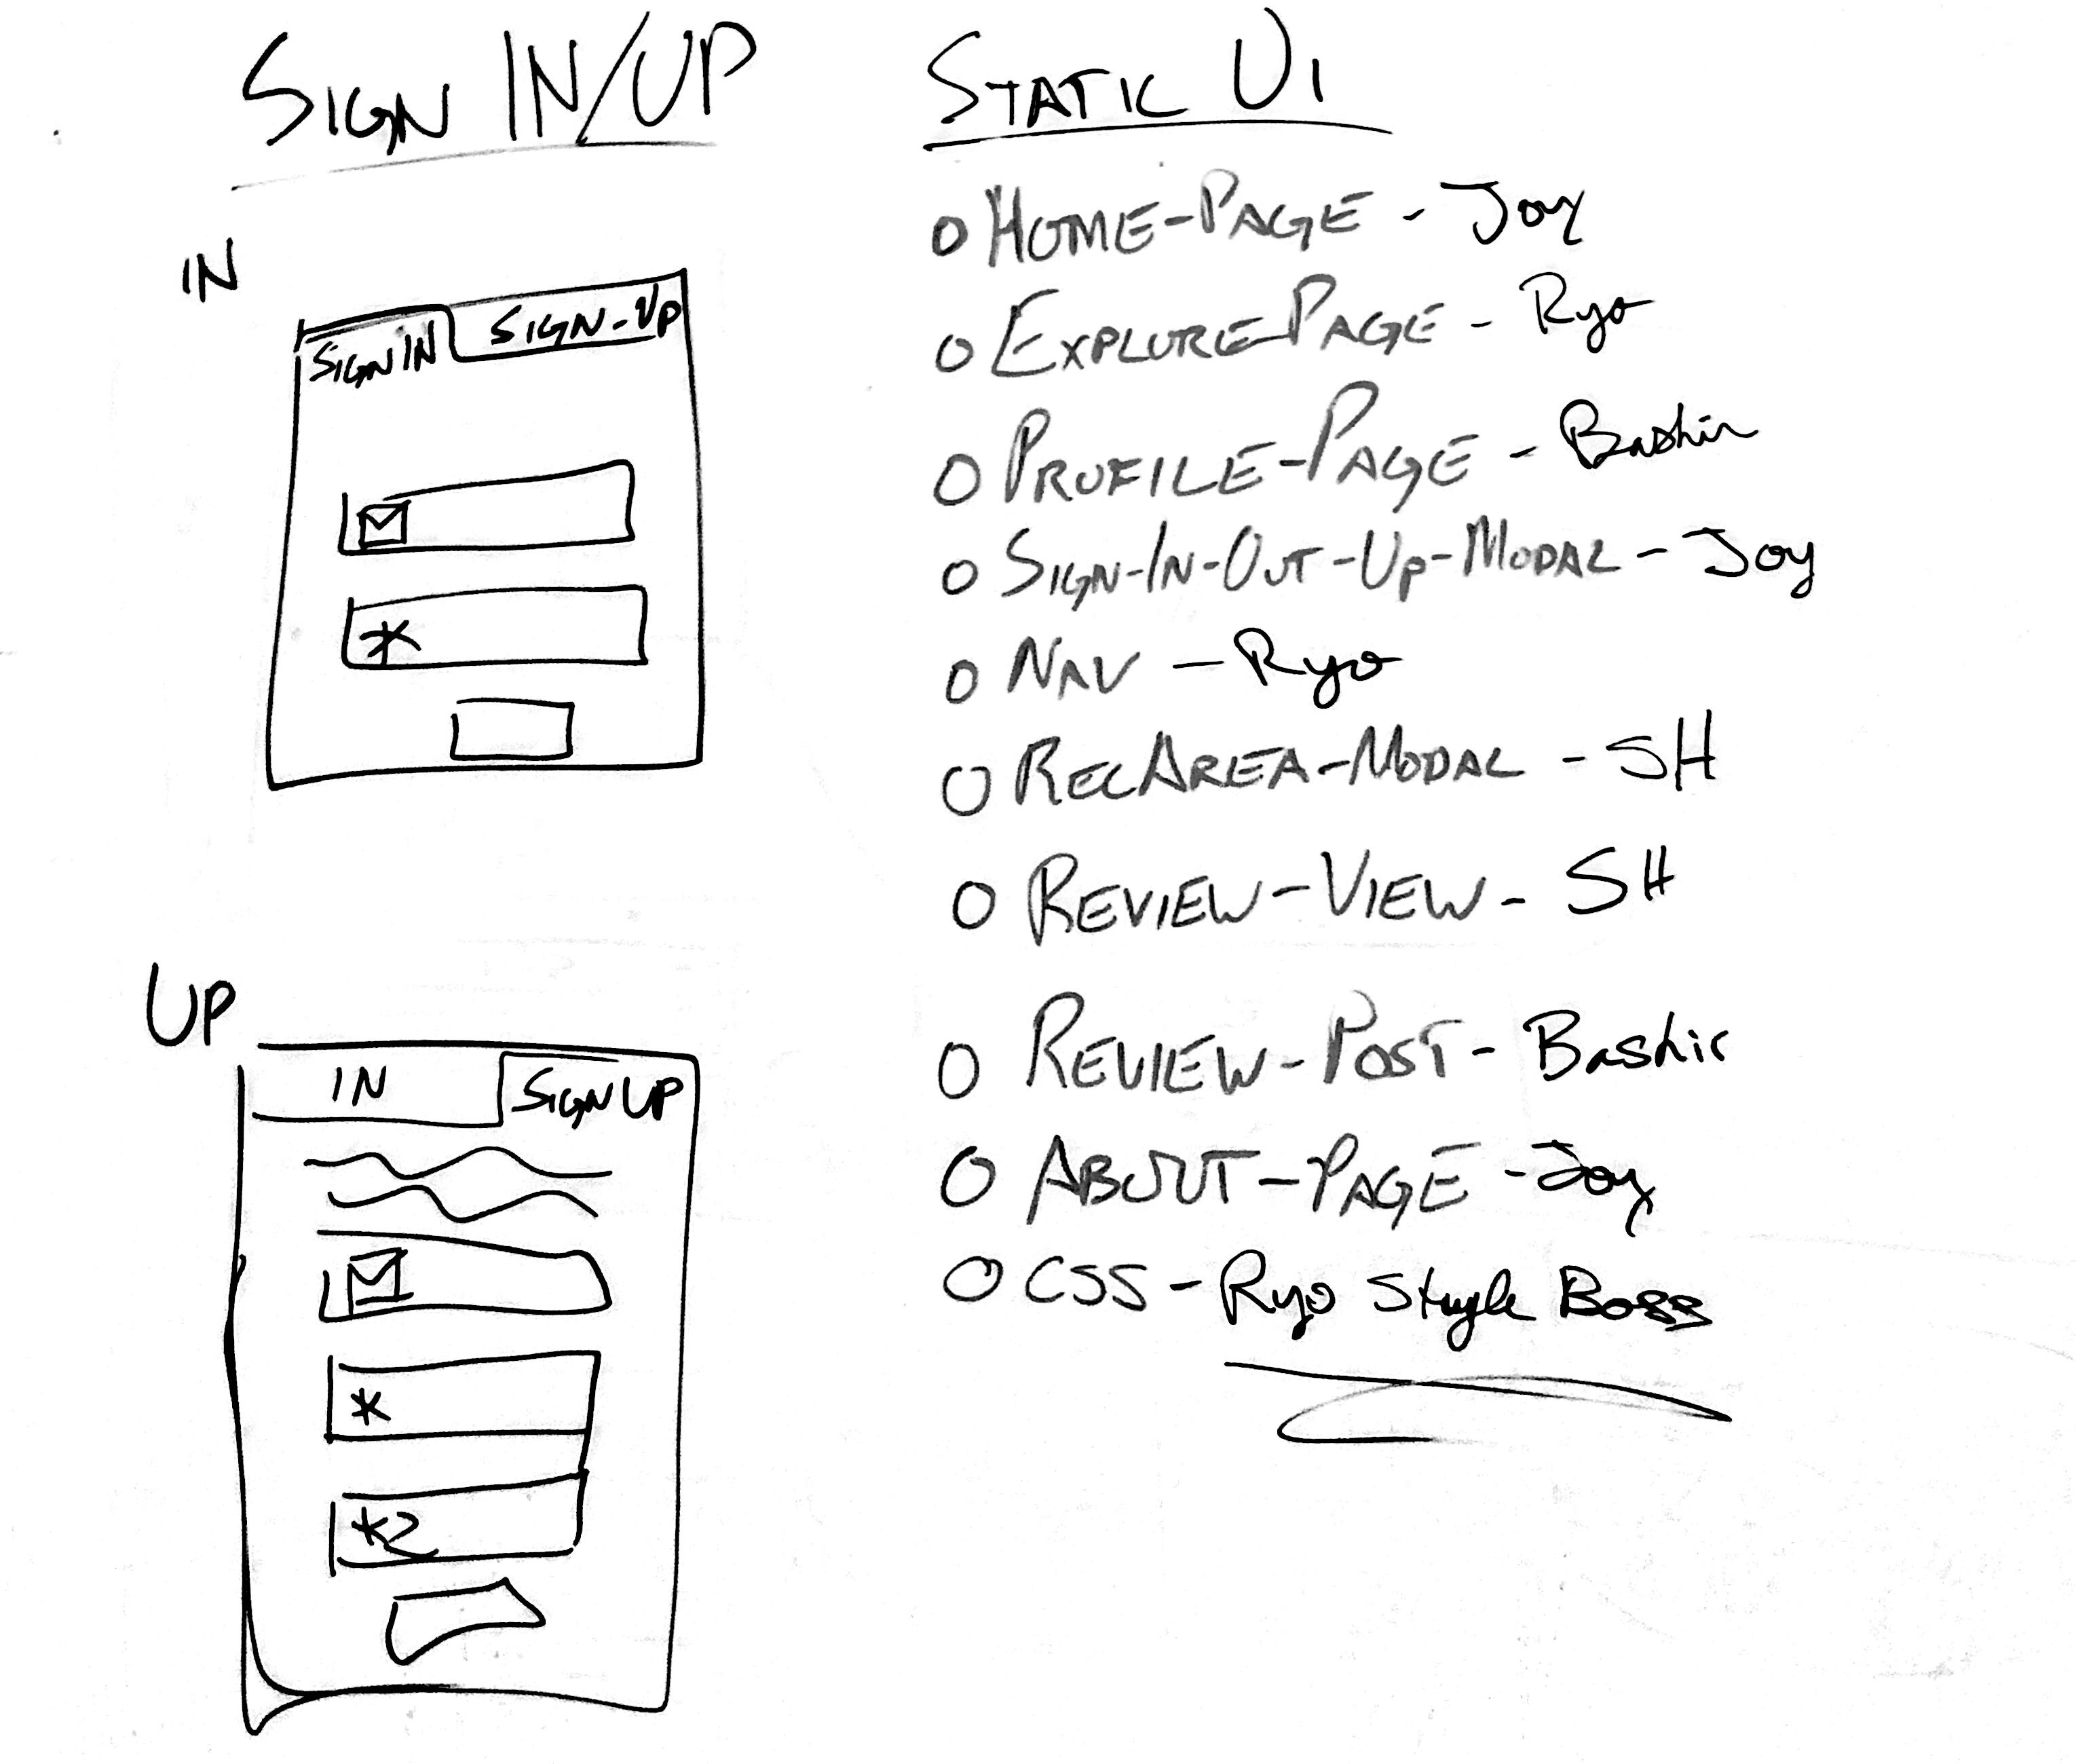 SIGN IN/UP
IN
SIGN IN SIGN-UP
*
UP
IN SIGN UP
*
*2
STATIC UI
O HOME-PAGE - Joy
O EXPLORE-PAGE - Ryo
O PROFILE-PAGE - Bashir
O SIGN-IN-OUT-UP-MODAL - Joy
O NAV - Ryo
O RECAREA-MODAL - SH
O REVIEW-VIEW - SH
O REVIEW-POST - Bashir
O ABOUT-PAGE - Joy
O CSS - Ryo Style Boss